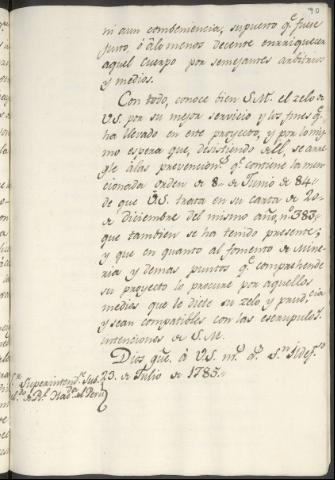 90
ni aun combeniencia, supuesto q.e fuese
justo, ó álo menos decente enrriquecer
aquel cuerpo por semejantes arbitrios
y medios.
Con todo, conoce bien S.M. el zelo de
VS. por su mejor servicio y los fines q.e
ha llevado en este proyecto, y por lo mis
mo espera que, desistiendo de él, se arre
gle álas prevencion.s q.e contiene la men
cionada orden de 8,, de Junio de 84,,
de que VS. trata en su carta de 20,,
de Diciembre del mismo año, n.o 383,,
que tambien se ha tenido presente;
y que en quanto al fomento de Mine
ria y demas puntos q.e comprehende
su proyecto lo procure por aquellos
medios que le dicte su zelo y prud.cia
y sean compatibles con las escrupulo.s
intenciones de S.M.
Dios gue. á VS. m.s a.s S.n Ildef.so
23,, de Julio de 1785,,
S.or Superintend.te Sub.
de R.l Haz.da del Perú